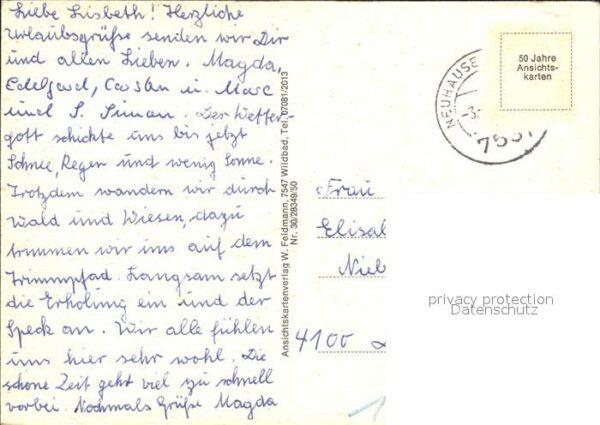 Liebe Lisbeth! Herzliche
Urlaubsgrüße senden wir Dir
und allen Lieben. Magda,
Edelgard, Carsten u. Marc
und S. Simon. Der Wetter-
gott schickte uns bis jetzt
Schnee, Regen und wenig Sonne.
Trotzdem wandern wir durch
Wald und Wiesen, dazu
trimmen wir uns auf dem
Trimmpfad. Langsam setzt
die Erholung ein und der
Speck an. Wir alle fühlen
uns hier sehr wohl. Die
schöne Zeit geht viel zu schnell
vorbei. Nochmals Grüße Magda
Ansichtskartenverlag W. Feldmann, 7547 Wildbad, Tel. 07081/2013
Nr. 30/28349/50
NEUHAUSE
-3.
50 Jahre
Ansichts-
karten
Frau
Elisa
Nie
4100
privacy protection
Datenschutz